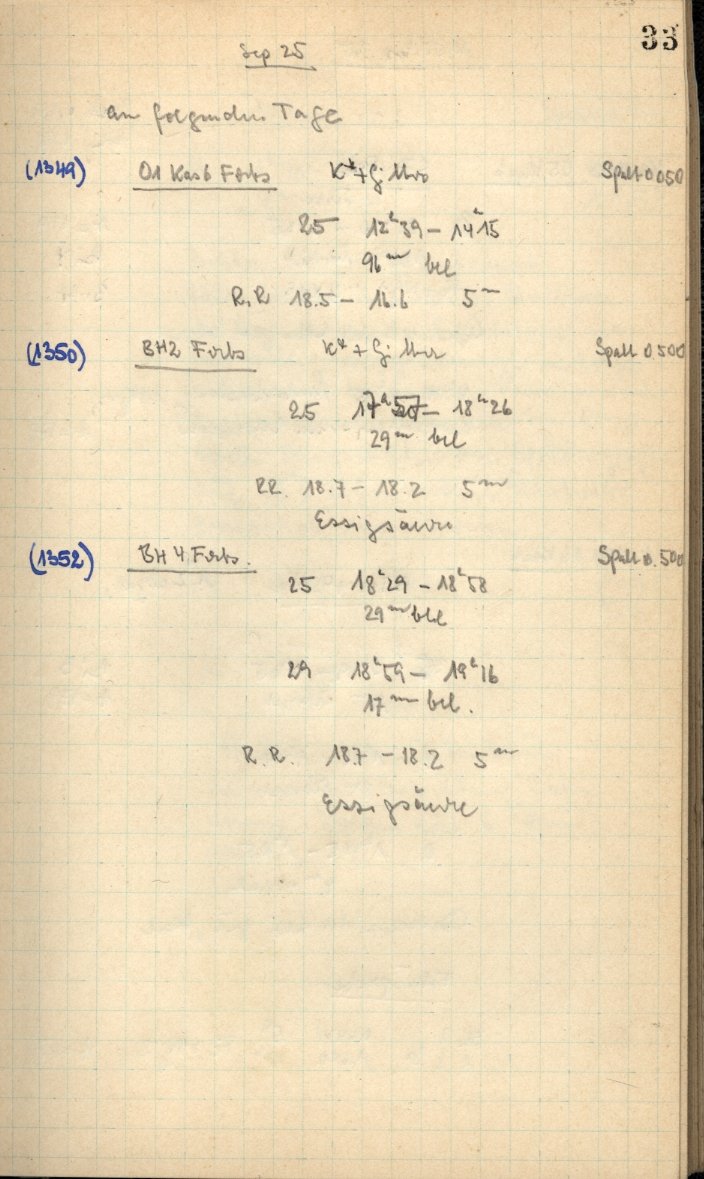 33
Sep 25
am folgenden Tage
(1349) 01 Kas 6 Forts K* + Gitter Spalt 0.050
25 12h39 – 14h15
96m bel
R.R 18.5 – 16.6 5m
(1350) BH2 Forts K* + Gitter Spalt 0.500
25 17h57 – 18h26
29m bel
RR. 18.7 – 18.2 5m
Essigsäure
(1352) BH 4 Forts. Spalt 0.500
25 18h29 – 18h58
29m bel
29 18h59 – 19h16
17m bel.
R.R. 18.7 – 18.2 5m
Essigsäure